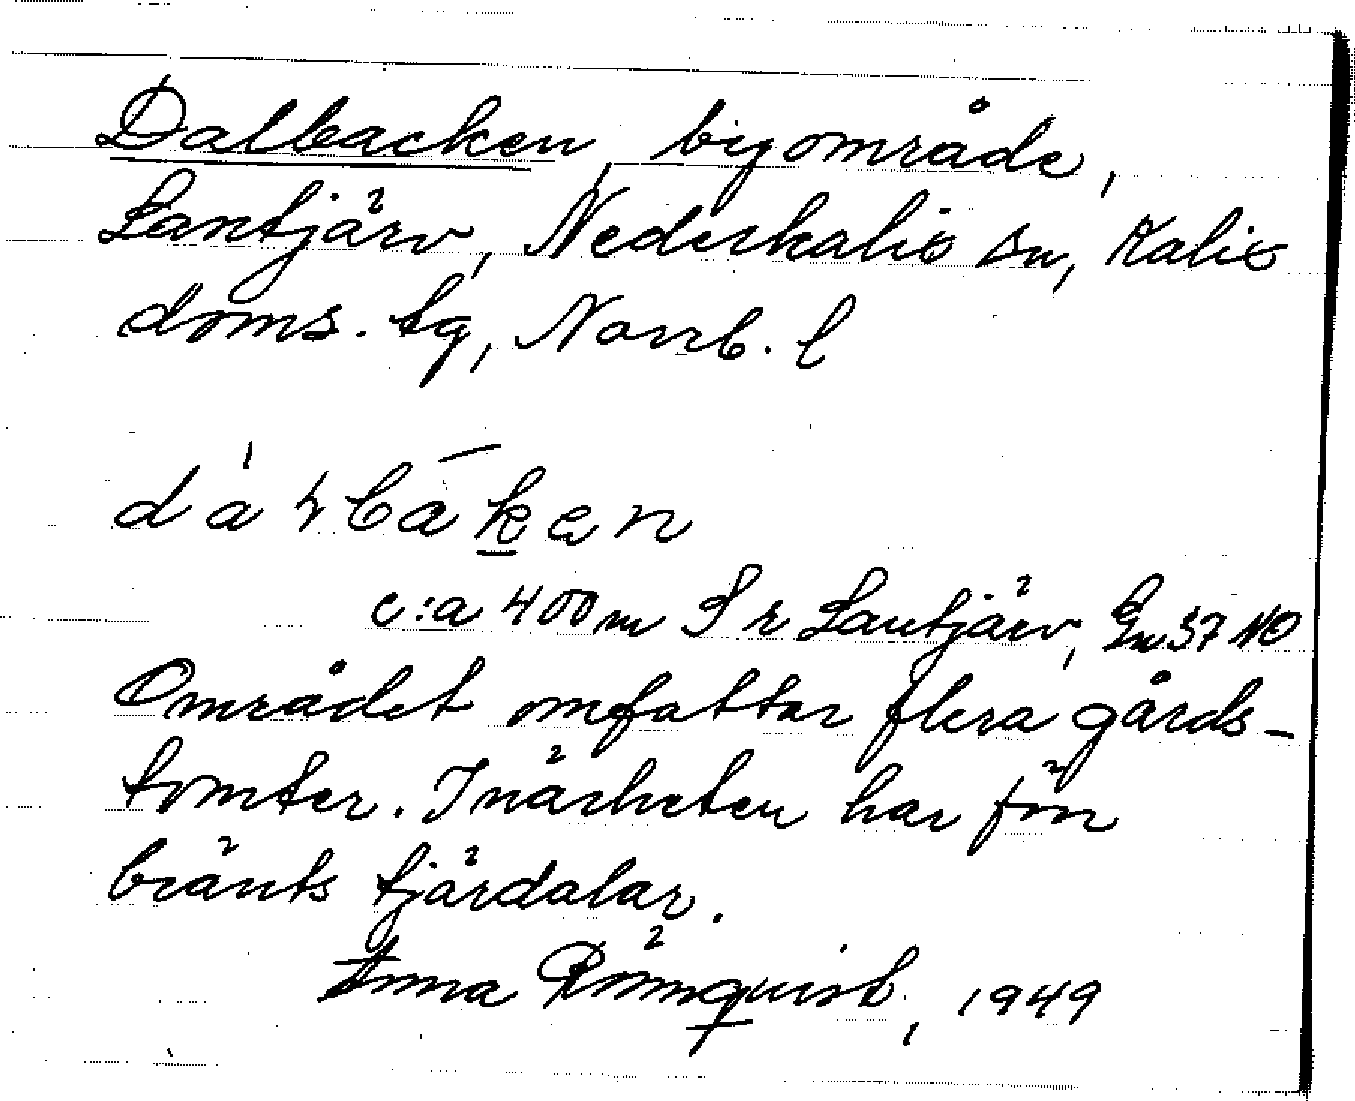 Dalbacken, byområde,
Lantjärv, Nederkalix sn, Kalix
doms. tg, Norrb. l
c:a 400 m S r Lantjärv, Gn 37 NO
Området omfattar flera gårds-
tomter. I närheten har förr
bränts tjärdalar.
Anna Rönnquist, 1949